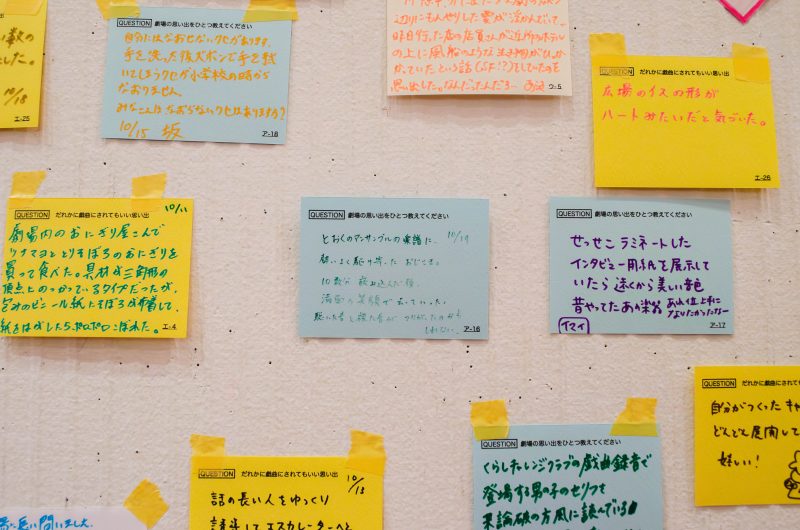 た。
10/18
エ-25
QUESTION 劇場の思い出をひとつ教えてください
自分にはなおせないクセがあります。
手を洗った後ズボンで手を拭
いてしまうクセが小学校の時から
なおりません。
みなさんはなおらないクセはありますか?
10/15 坂
ア-18
の上に風船のような生き物がひっか
かっていたという話(SF!?)をしていたのを
思い出した。なんだったんだろー
ウ-5
QUESTION だれかに戯曲にされてもいい思い出
広場のイスの形が
ハートみたいだと気づいた。
エ-26
10/11
QUESTION だれかに戯曲にされてもいい思い出
劇場内のおにぎり屋さんで
ツナマヨととりそぼろのおにぎりを
買って食べた。具材が三角形の
頂点にのっかっているタイプだったが、
包みのビニール紙にそぼろが付着して、
紙をはがしたらポロポロこぼれた。
エ-4
QUESTION 劇場の思い出をひとつ教えてください
とおくのアンサンブルの楽譜に、 10/19
勢いよく駆け寄ったおじさま。
10数分
満面の笑顔で
ア-16
QUESTION 劇場の思い出をひとつ教えてください
せっせこ ラミネートした
インタビュー用紙を展示して
いたら 遠くから美しい音色
昔やってたあの楽器 あれ位上手に
なりたかったなー
イマイ
ア-17
QUESTION だれかに戯曲にされてもいい思い出
自分がつくったキャ
どんどん展開して
嬉しい!
QUESTION だれかに戯曲にされてもいい思い出
10/13
話の長い人をゆっくり
エスカレーターへと
QUESTION 劇場の思い出をひとつ教えてください
くらしたいレンジクラブの戯曲録音で
登場する男の子のセリフを
某論破の方風に読んでいる
問いました。